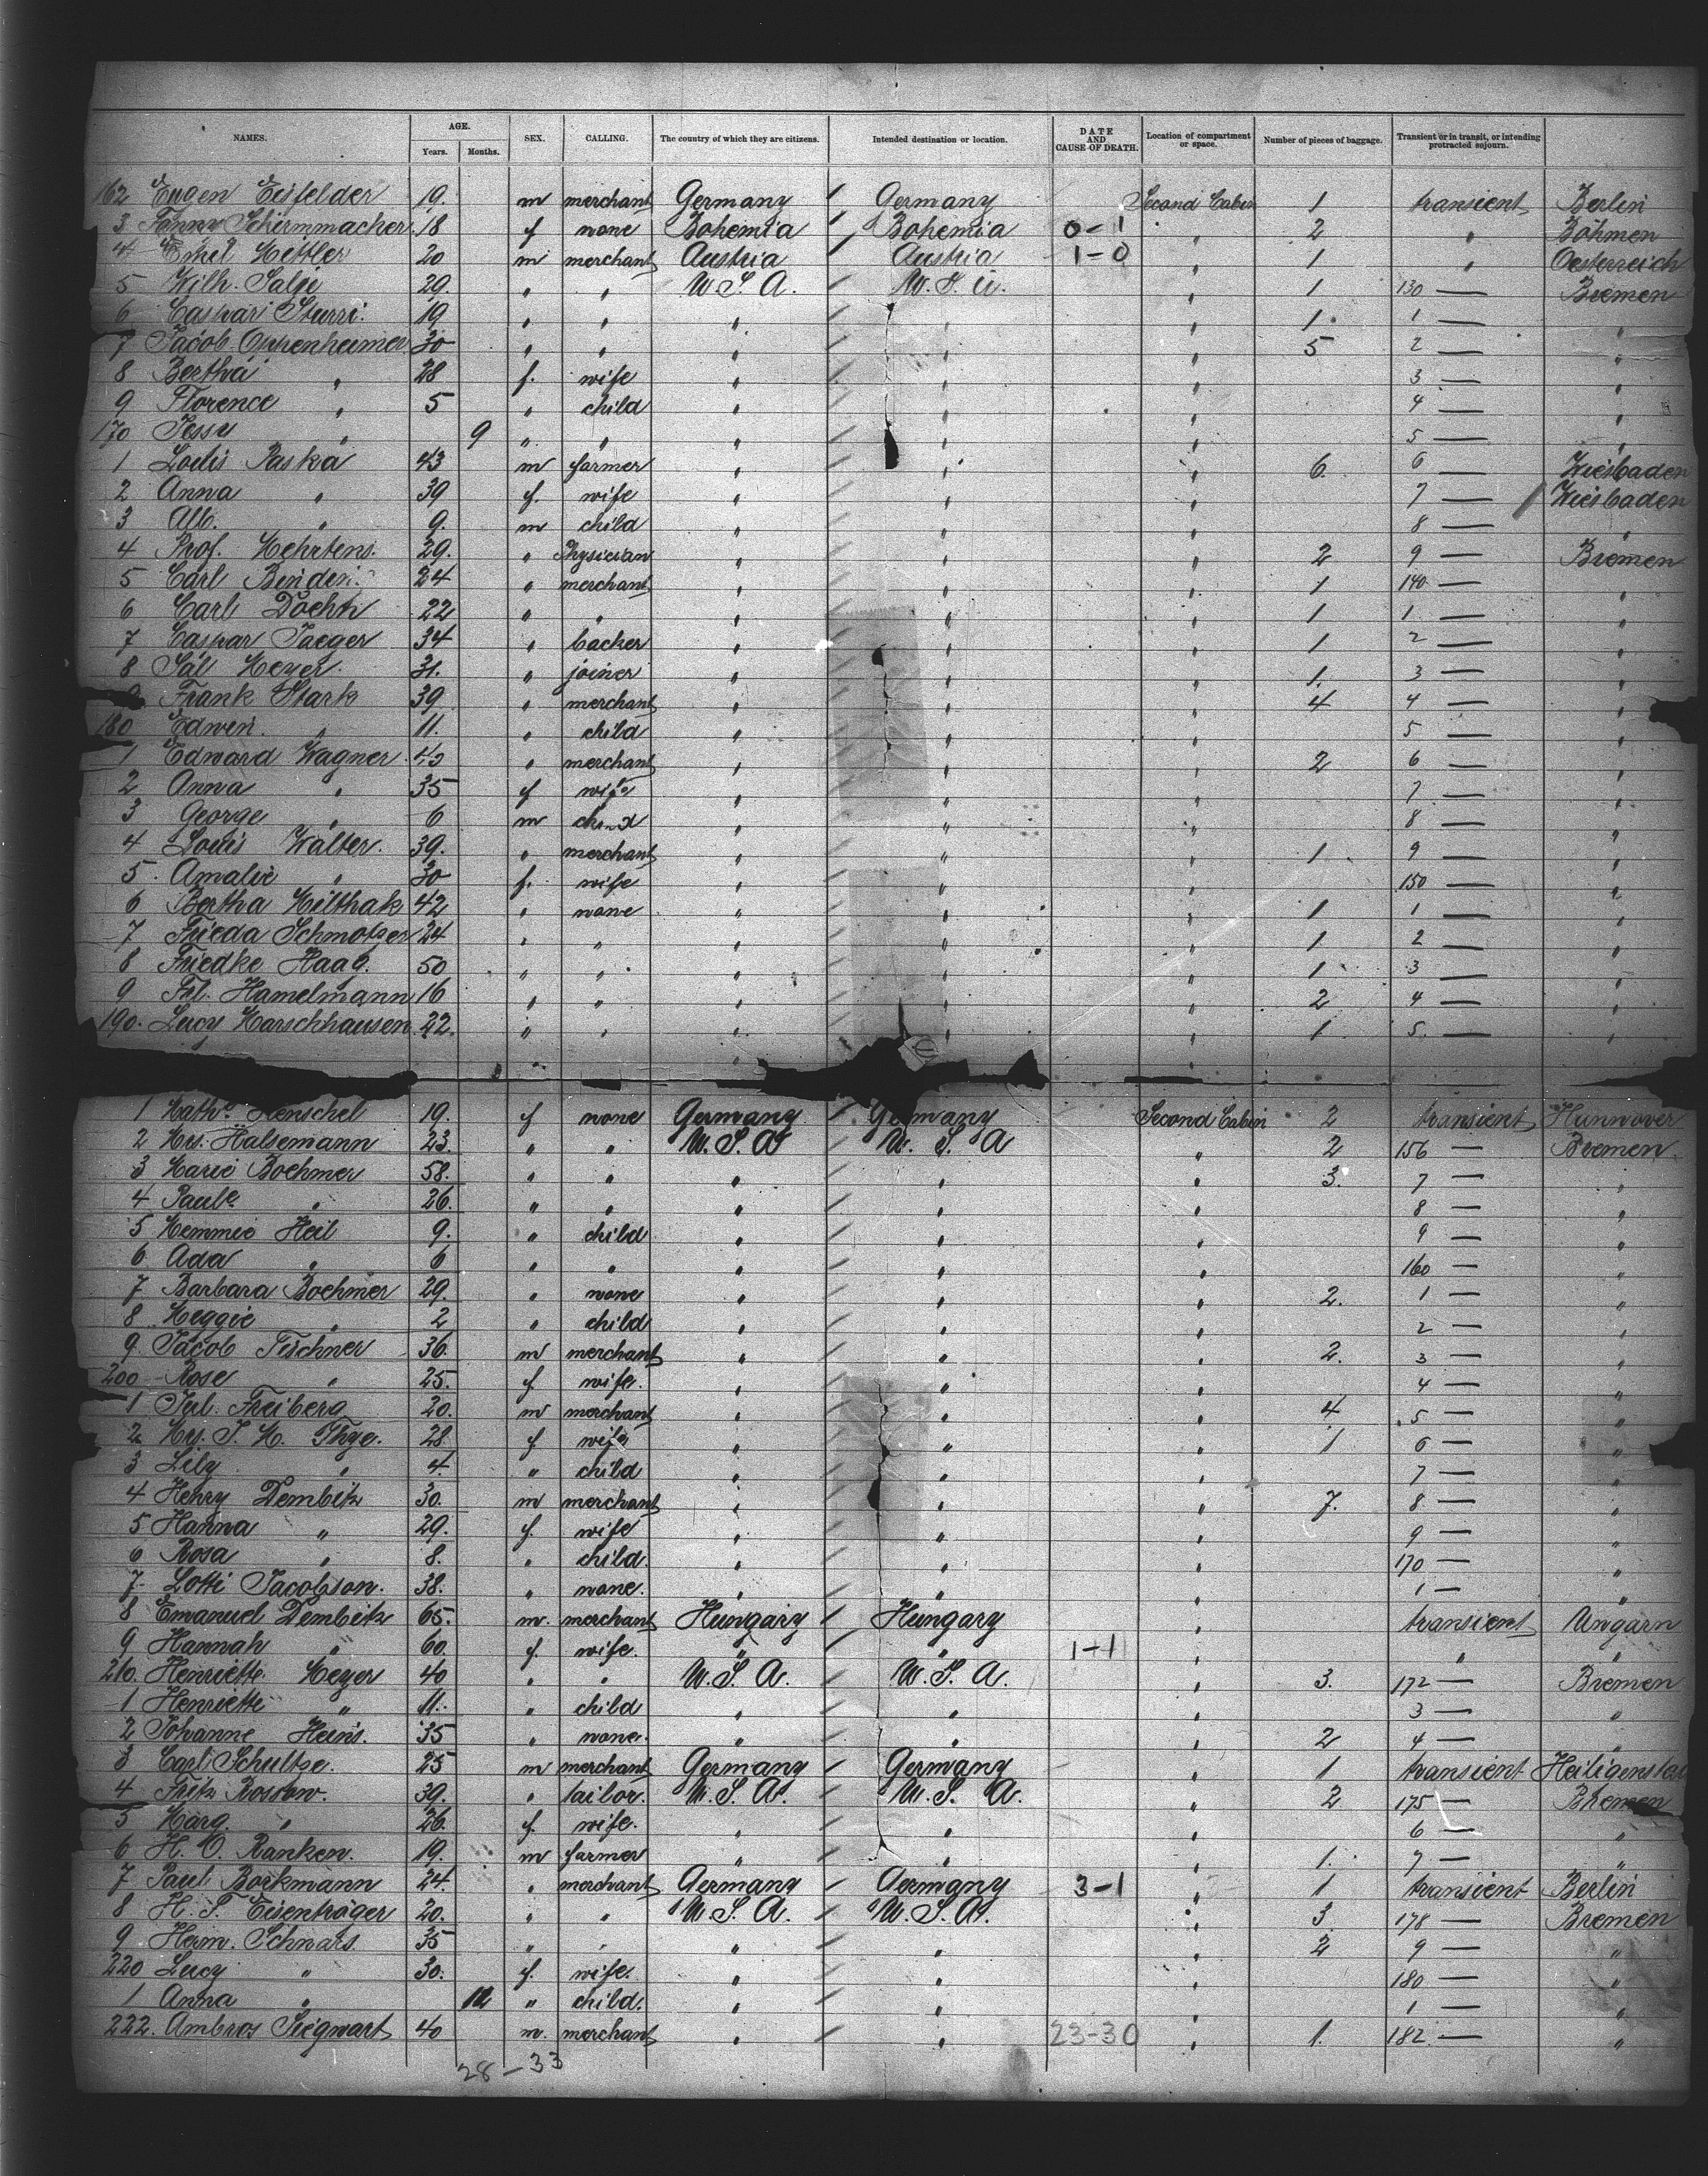 NAMES. AGE. Years. Months. SEX. CALLING. The country of which they are citizens. Intended destination or location. DATE AND CAUSE OF DEATH. Location of compartment or space. Number of pieces of baggage. Transient or in transit, or intending protracted sojourn.
162 Eugen Eisfelder 19. m merchant Germany / Germany Second Cabin 1 transient Berlin
3 Fanny Schirmmacher 18 f none Bohemia / Bohemia 0-1 " 2 " Böhmen
4 Emil Mittler 20 m merchant Austria / Austria 1-0 " 1 " Oesterreich
5 Wilh. Salje 29. " " U.S.A. / U.S.A. " 1 130 — Bremen
6 Caspari 19 " " " / " " 1. 1 — "
7 Jacob Oppenheimer 30 " " " / " " 5 2 — "
8 Bertha " 28 f. wife " / " " 3 — "
9 Florence " 5 " child " / " " 4 — "
170 Jessy " 9 " " " / " " 5 — "
1 Louis Paska 43 m farmer " / " " 6. 6 — Wiesbaden
2 Anna " 39 f. wife " / " " 7 — Wiesbaden
3 Alb. " 9. m child " / " " 8 — "
4 Prof. Mehrtens. 29. " Physician " / " " 2 9 — Bremen
5 Carl 24 " merchant " / " " 1 140 — "
6 Carl Doehn 22 " " " / " " 1 1 — "
7 Caspar Jaeger 34 " backer " / " " 1 2 — "
8 Sal Meyer. 31. " joiner " / " " 1. 3 — "
9 Frank Stark 39 " merchant " / " " 4 4 — "
180 Edwin. " 11. " child " / " " 5 — "
1 Edward Wagner 43 " merchant " / " " 2 6 — "
2 Anna " 35 f wife " / " " 7 — "
3 George " 6 m child " / " " 8 — "
4 Louis Walter. 39. " merchant " / " " 1 9 — "
5. Amalie " 30 f. wife " / " " 150 — "
6 Bertha Milthak 42 " none " / " " 1 1 — "
7 Frieda Schmotzer 24 " " " / " " 1 2 — "
8 Friedke Haag. 50 " " " / " " 1 3 — "
9 Frl. Hamelmann 16 " " " / " " 2 4 — "
190. Lucy Marschhausen 22. " " " / " " 1 5. — "
1 Henschel 19. f none Germany / Germany Second Cabin 2 transient Hannover
2 Mrs. Halsemann 23. " " U.S.A / U.S.A " 2 156 — Bremen.
3 Marie Boehmer 58. " " " / " " 3. 7 — "
4 Paule " 26. " " " / " " 8 — "
5 Memmie Heil 9. " child " / " " 9 — "
6 Ada " 6 " " " / " " 160 — "
7 Barbara Boehmer 29. " none " / " " 2. 1 — "
8 Meggie " 2 " child " / " " 2 — "
9 Jacob Tischner 36. m merchant " / " " 2. 3 — "
200 Rose " 25. f wife. " / " " 4 — "
1 Jul. Freiberg 20. m merchant " / " " 4 5 — "
2 Mrs. J. H. Thye. 28. f wife " / " " 1 6 — "
3 Lily " 4. " child " / " " 7 — "
4 Henry Dembitz 30. m merchant " / " " 7. 8 — "
5 Hanna " 29. f. wife " / " " 9 — "
6 Rosa " 8. " child. " / " " 170 — "
7 Lotti Jacobson. 38. " none. " / " " 1 — "
8 Emanuel Dembitz 65. m. merchant Hungary / Hungary " transient Ungarn
9 Hannah " 60. f. wife. " / " 1-1 " " "
210. Henriette Meyer 40 " " U.S.A. / U.S.A. " 3. 172 — Bremen
1 Henriette " 11. " child " / " " 3 — "
2 Johanne Heins. 35 " none. " / " " 2 4 — "
3 Carl Schultze. 25 m merchant Germany / Germany " 1 transient
4 Fritz Rossow. 39. " tailor. U.S.A. / U.S.A. " 2 175 — Bremen
5 Marg. " 26. f. wife. " / " " 6 — "
6 H. O. Ranken. 19. m farmer " / " " 1. 7 — "
7 Paul Borkmann 24. " merchant Germany / Germany 3-1 " 1 transient Berlin
8 H. F. Eisenträger 20. " " U.S.A. / U.S.A. " 3. 178 — Bremen
9 Herm. Schnars. 35 " " " / " " 2 9 — "
220 Lucy " 30. f. wife. " / " " 180 — "
1 Anna " " child. " / " " 1 — "
222. Ambros Siegwart 40 m. merchant " / " 23-30 " 1. 182. — "
28-33